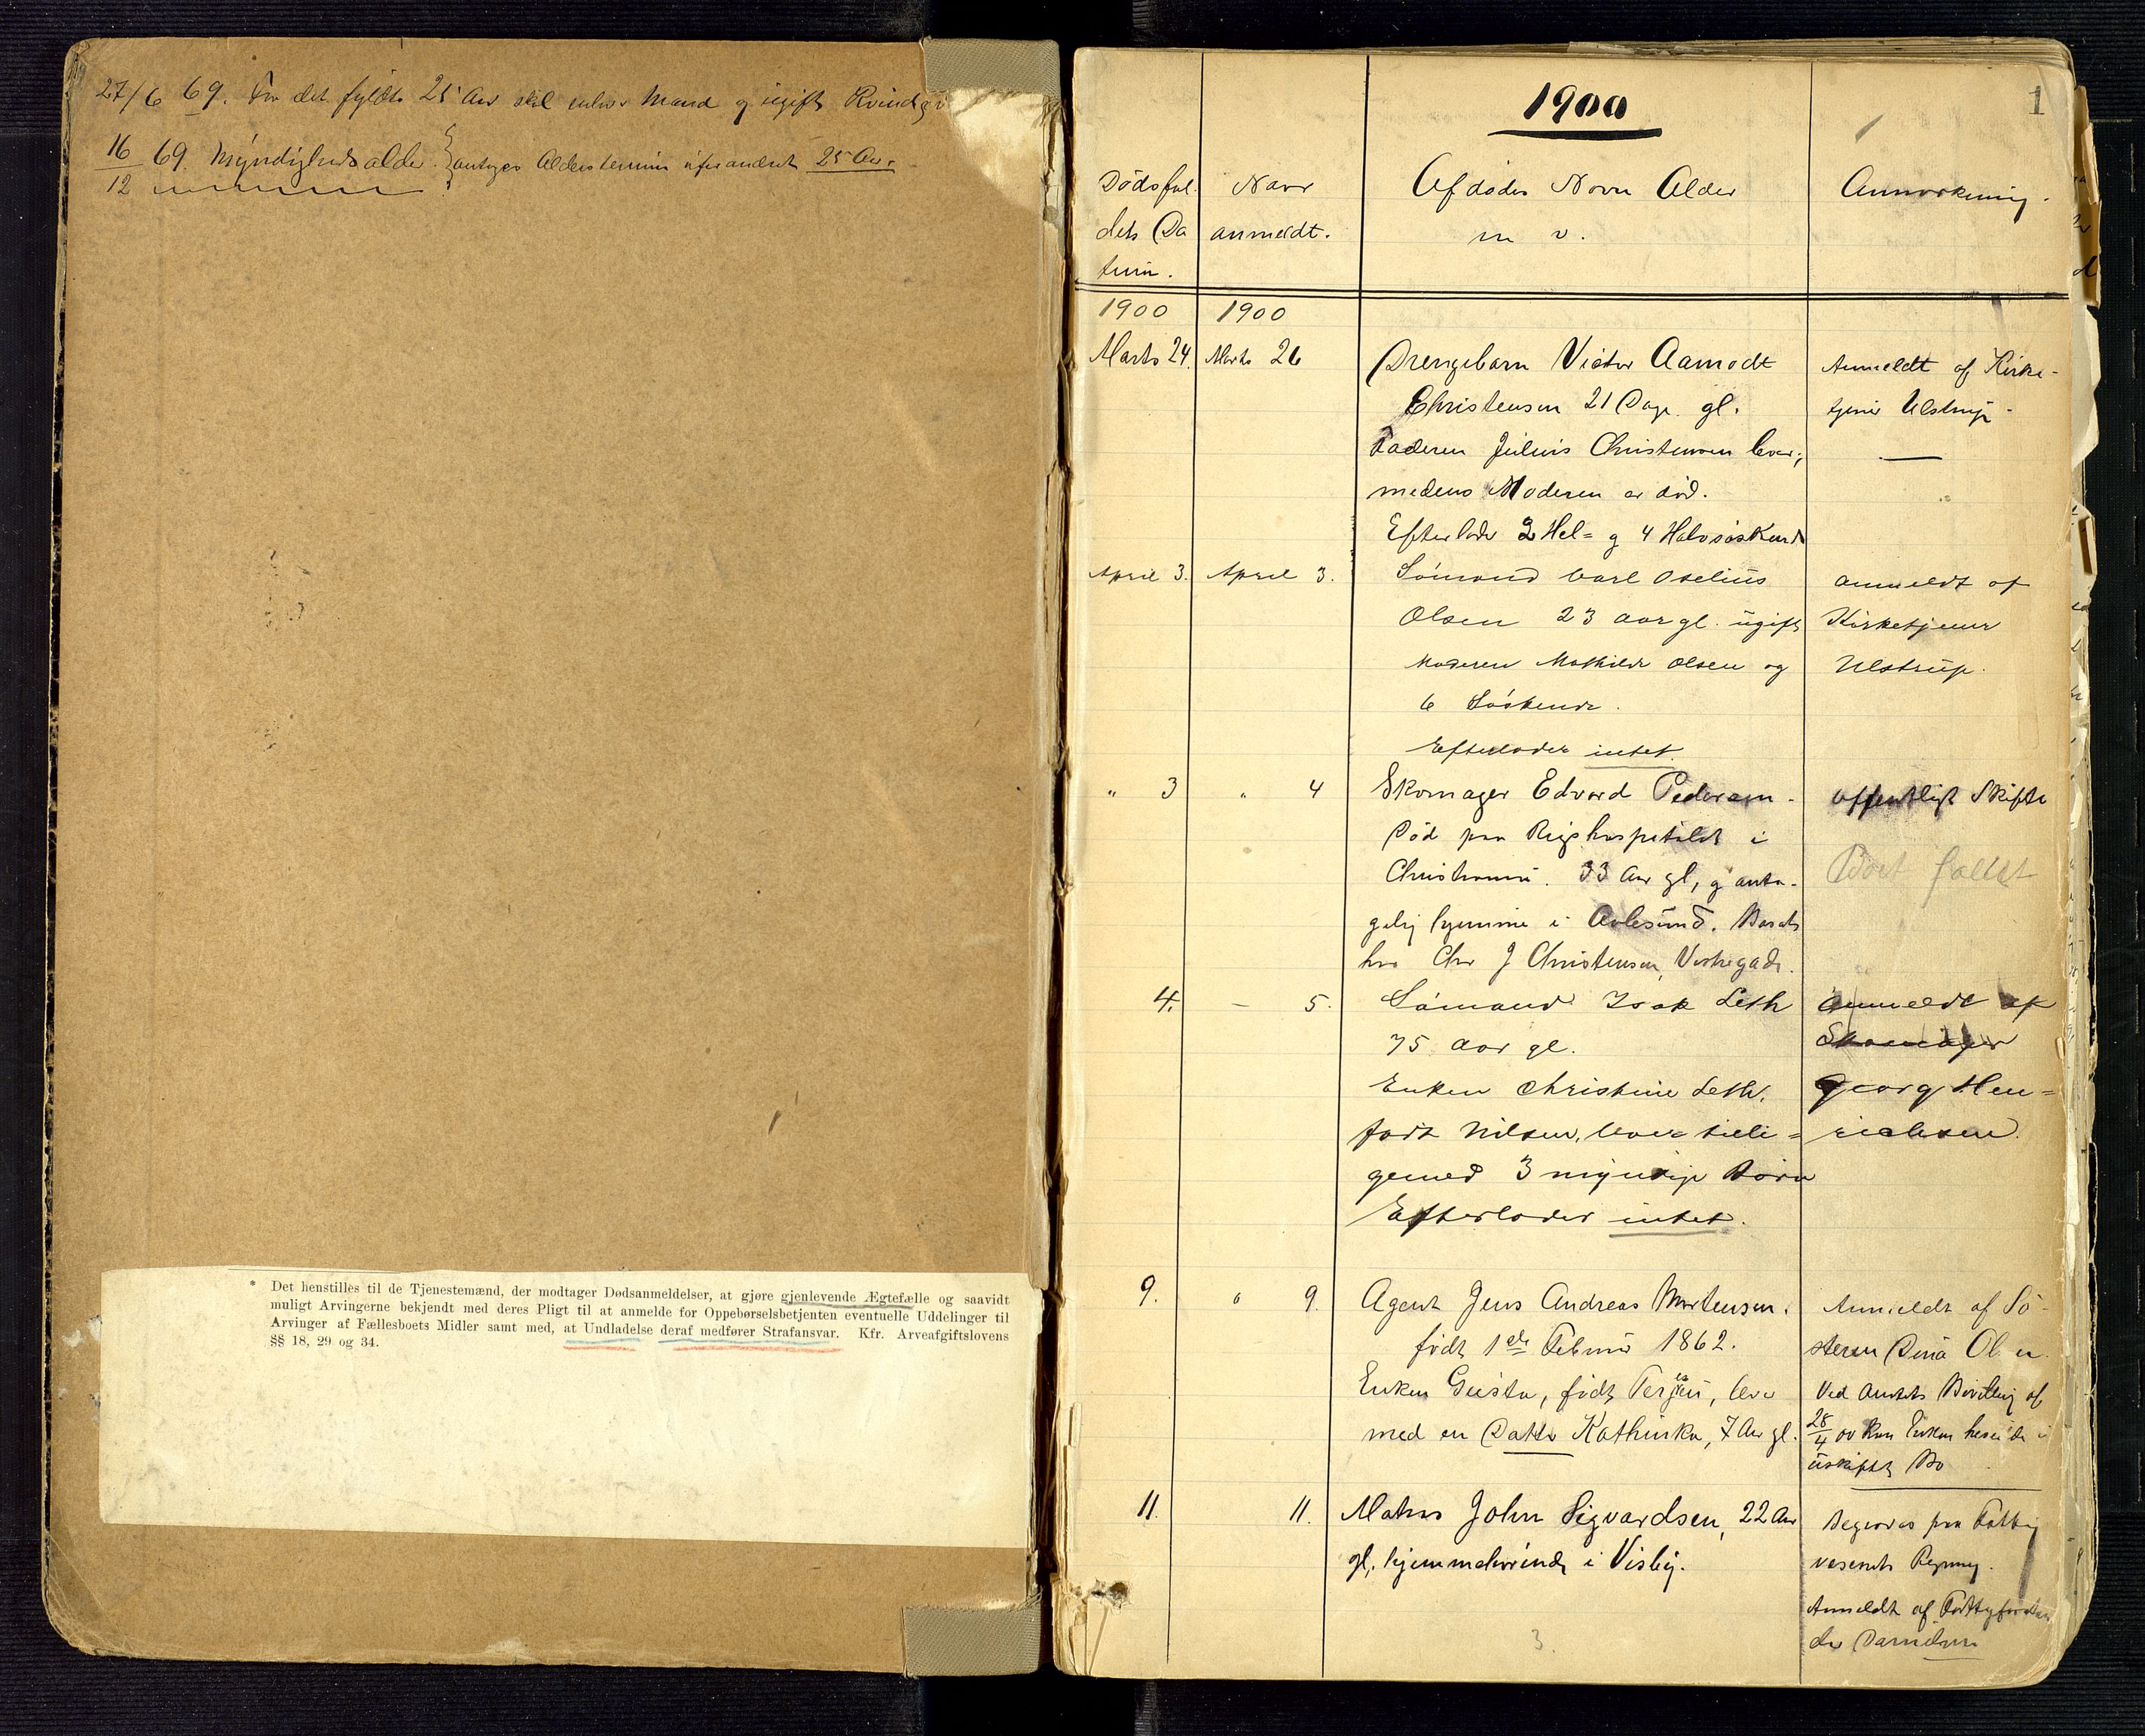 27/6 69. Før det fyldte 25 Aar skal enhver Mand og ugift Kvinde
16/12 69. Myndighedsalder. antages Alderstermin uforandret 25 Aar
* Det henstilles til de Tjenestemænd, der modtager Dødsanmeldelser, at gjøre gjenlevende Ægtefælle og saavidt
muligt Arvingerne bekjendt med deres Pligt til at anmelde for Oppebørselsbetjenten eventuelle Uddelinger til
Arvinger af Fællesboets Midler samt med, at Undladelse deraf medfører Strafansvar. Kfr. Arveafgiftslovens
§§ 18, 29 og 34.
1
1900
Dødsfal-
dets Da
tum.
Naar
anmeldt.
Afdødes Navn Alder
m v.
Anmærkning.
1900
1900
Marts 24.
Marts 26
Drengebarn Victor Aamodt
Christensen 21 Dage gl.
Faderen Julius Christensen lever,
medens Moderen er død.
Efterlader 2 Hel= og 4 Halvsøskende
Anmeldt af Kirke-
tjener Ulstrup.
April 3.
April 3.
Sømand Carl Oselius
Olsen 23 aar gl. ugift
Moderen Mathilde Olsen og
6 Søskende.
Efterlader intet.
anmeldt af
Kirketjener
Ulstrup.
" 3
" 4
Skomager Edvard Pedersen.
Død paa Rigshospitalet i
Christiania. 33 Aar gl, og anta-
gelig hjemme i Aalesund. Borte
hos Chr J Christensen, Vestregade.
offentligt Skifte
Bort faldet
4.
– 5.
Sømand Isak Leth
75 aar gl.
Enken Christine Leth,
født Nilsen, lever tilli=
gemed 3 myndige Børn
Efterlader intet.
anmeldt af
Skomager
Georg Hen=
richsen.
9.
" 9.
Agent Jens Andreas Mortensen.
født 1ste Februar 1862.
Enken Gusta, født Terjesen, lever
med en Datter Kathinka, 7 Aar gl.
Anmeldt af Sø-
steren Dina Olsen
Ved Amtets Bevilling af
28/4 00 kan Enken hensidde i
uskiftet Bo
11.
11.
Matros John Sigvardsen, 22 Aar
gl, hjemmehørende i Visby.
Begraves paa Fattig
væsenets Regning.
Anmeldt af Fattigforstan
der Danielsen
3.